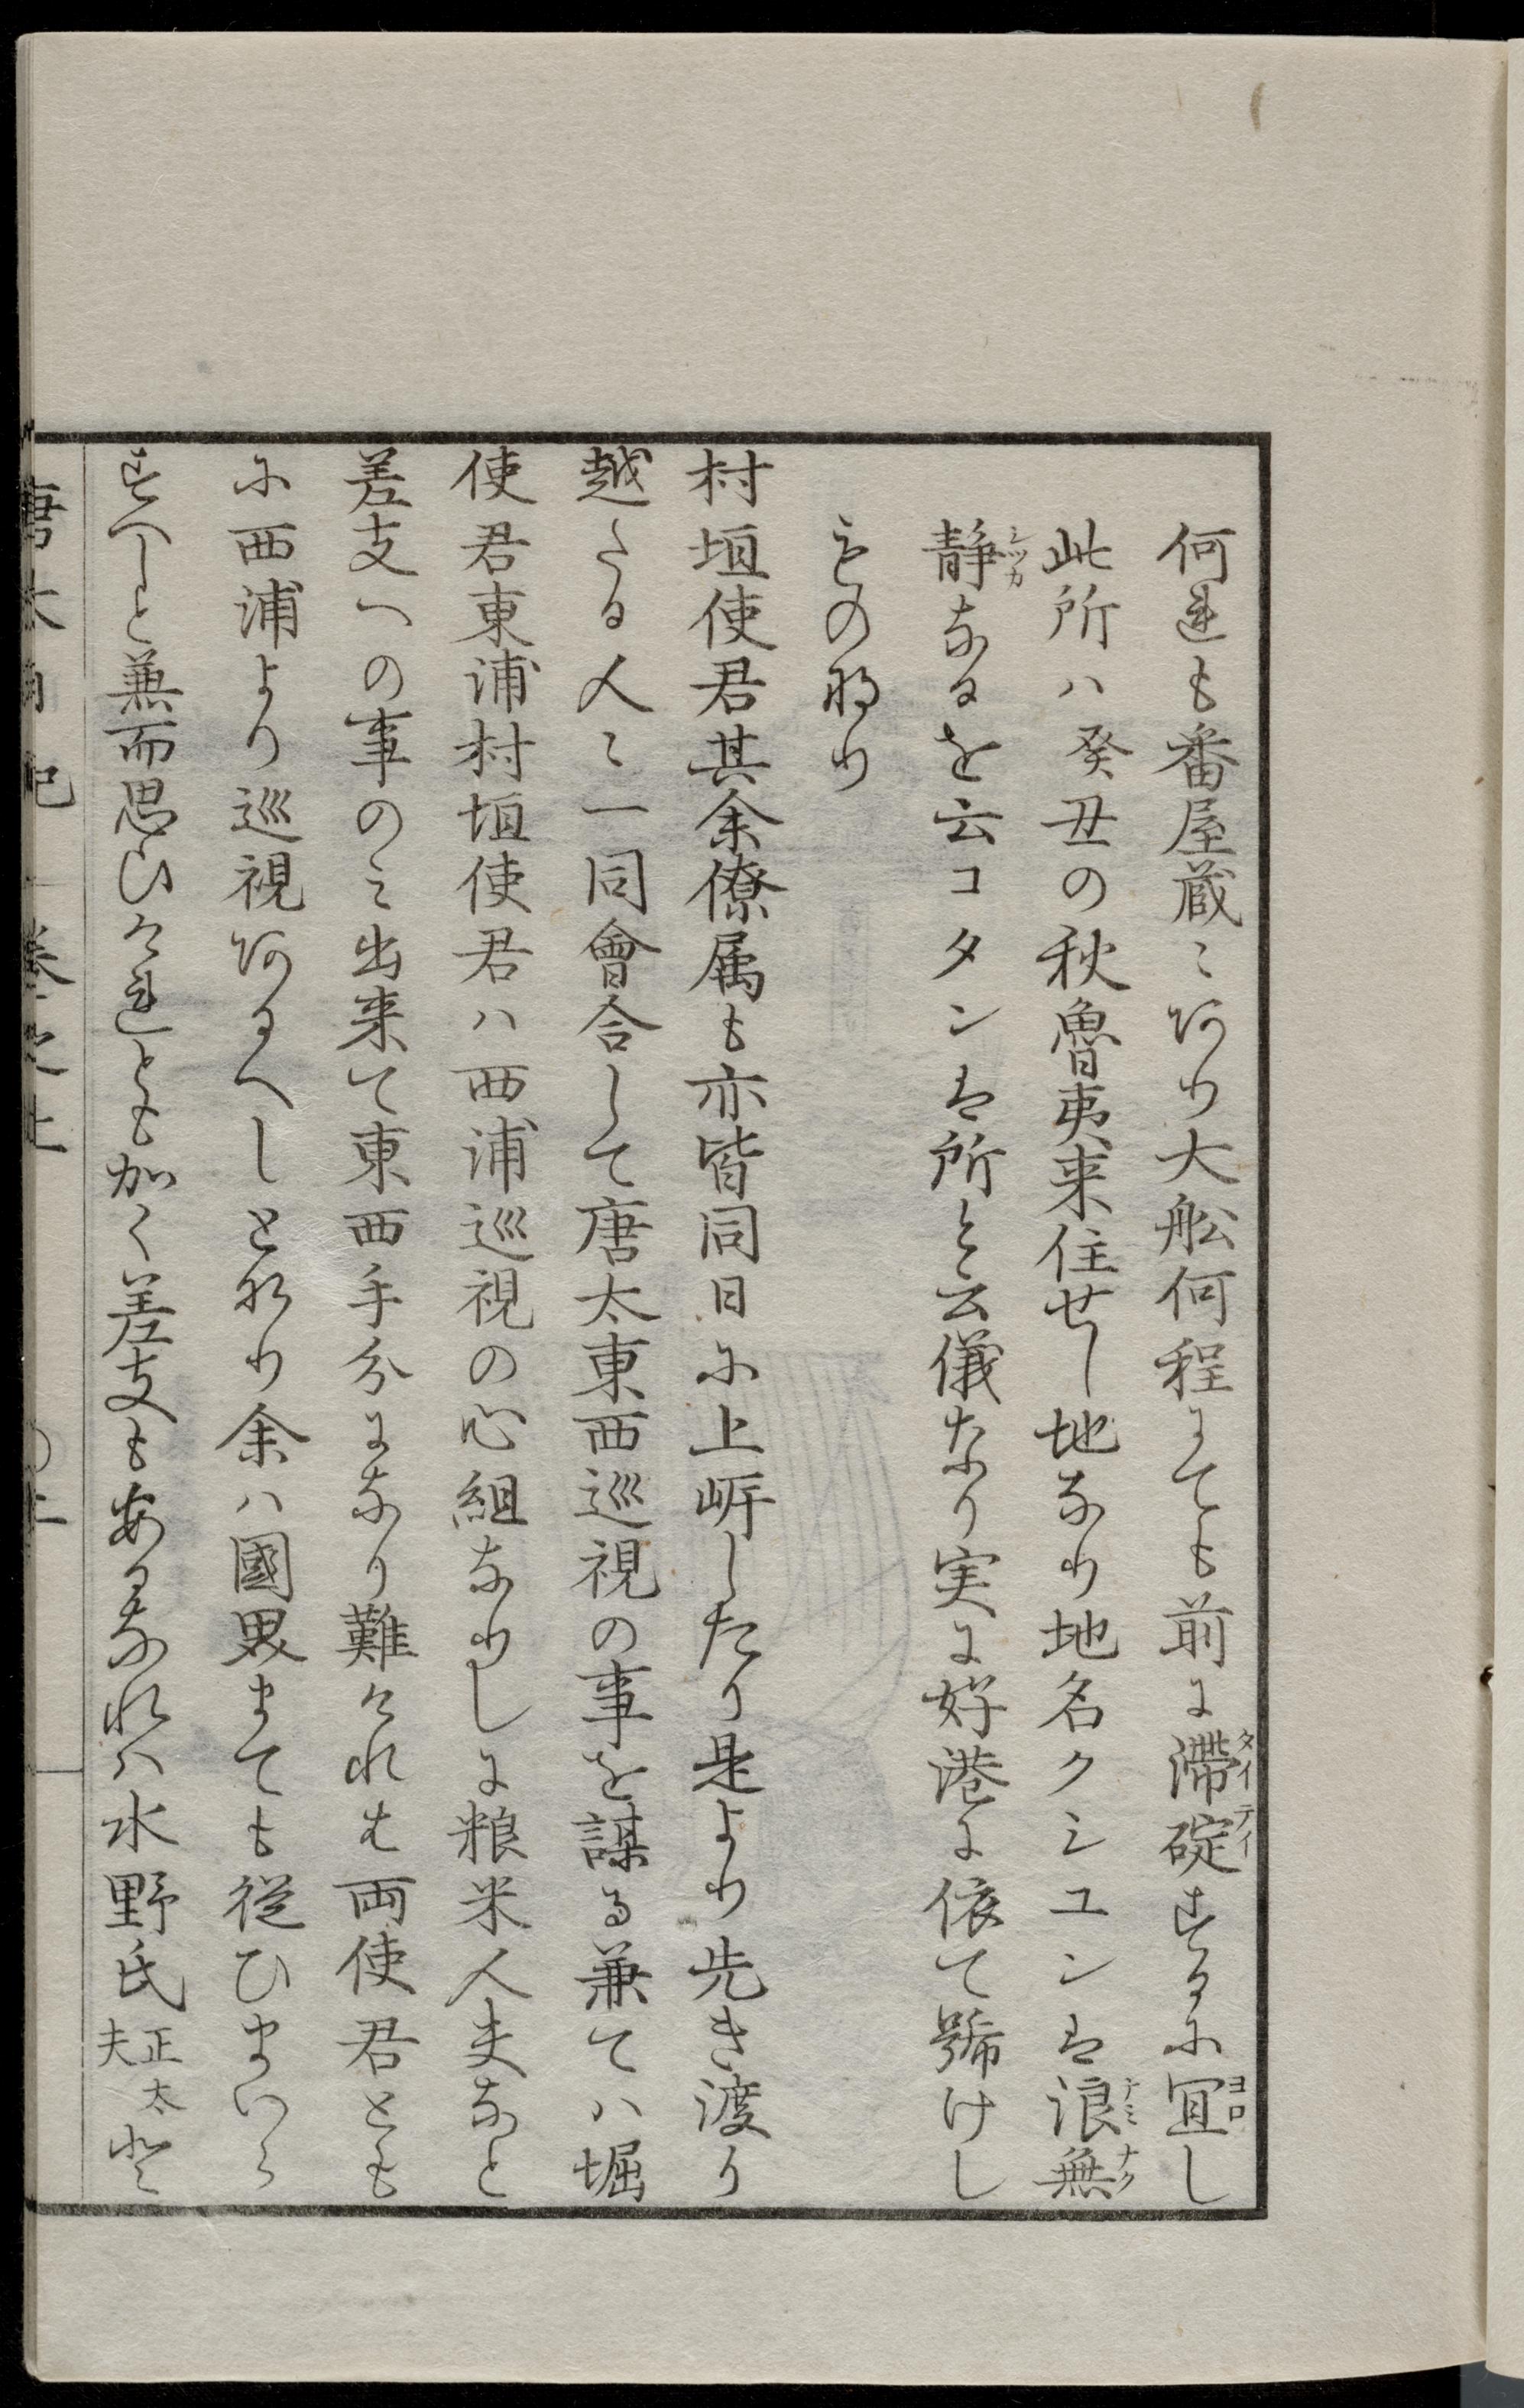 何れも番屋蔵ミあり大舩何程にても前に滞碇するに宜し
此所ハ癸丑の秋魯夷来住せし地なり地名クシユンは浪無
静なるを云コタンは所と云儀なり実に好港に依て號けし
もの那り
村垣使君其余僚属も亦皆同日に上㟁したり是より先き渡り
越たる人〻一同會合して唐太東西巡視の事を謀る兼てハ堀
使君東浦村垣使君ハ西浦巡視の心組なりしに粮米人夫なと
差支への事のミ出来て東西手分になり難けれは両使君とも
に西浦より巡視あるへしとなり余ハ國界まても従ひまいら
すへしと兼而思ひけれとも加く差支も安るなれハ水野氏正太夫と
唐太日記 巻之上